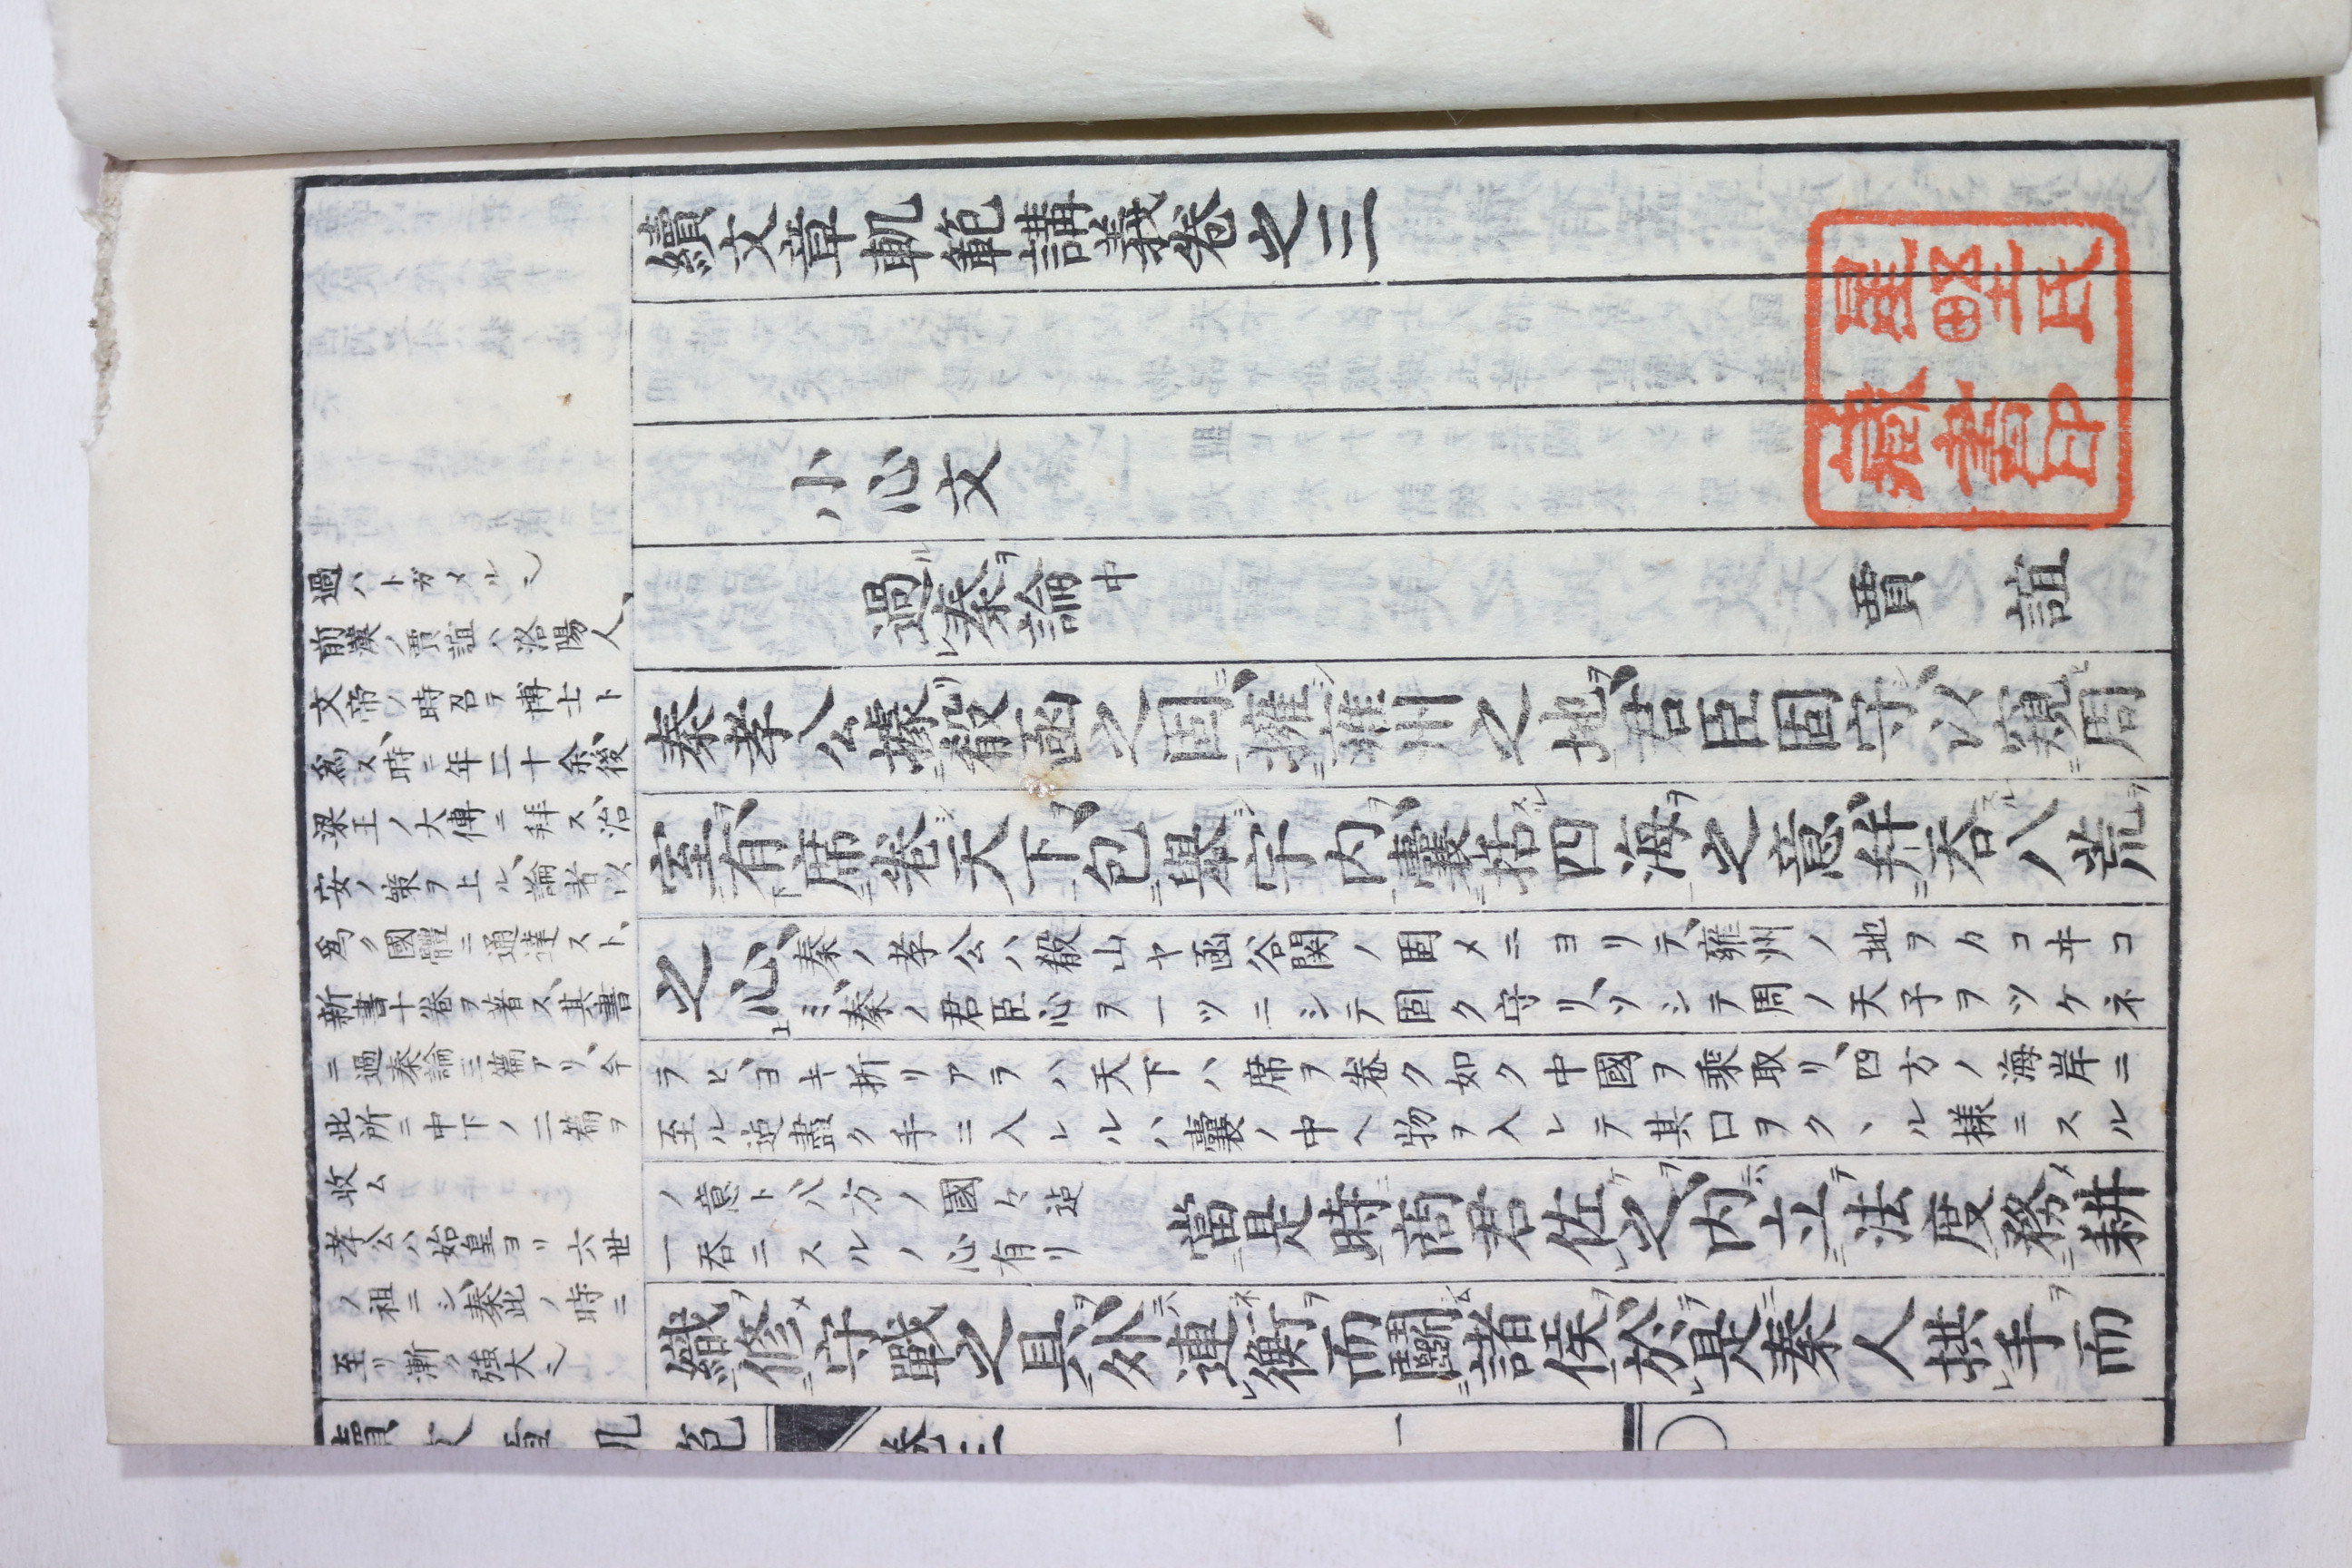 續文章軌範講義卷之三
小心文
過ルレ秦ヲ論中 賈誼
秦孝公據リ二殽函之固ニ一、擁シ二雍州之地ヲ一、君臣固守シ、以窺ヒ二周
室ヲ一、有下席二卷シ天下ヲ一、包二擧シ宇内ヲ一、囊二括スル四海ヲ一之意、幷二吞スル八荒ヲ一
之心上、
秦ノ孝公ハ殽山ヤ函谷関ノ固メニヨリテ、雍州ノ地ヲカコヰコ
ミ、秦ノ君臣心ヲ一ツニシテ固ク守リ、ソシテ周ノ天子ヲツケネ
ラヒ、ヨキ折リアラハ天下ハ席ヲ卷ク如ク中國ヲ乘取リ、四方ノ海岸ニ
至ル迠盡ク手ニ入レルハ囊ノ中ヘ物ヲ入レテ其口ヲクヽル様ニスル
ノ意ト、八方ノ國々迠
一吞ニスルノ心有リ
當二是時ニ一商君佐ケレ之ヲ、内ニハ立テ二法度務メ二耕
織ヲ一修メ二守戰之具ヲ一、外ニハ連ネレ衡ヲ而鬭シム二諸侯ヲ一、於テレ是ニ秦人拱レ手ヲ而
過ハトガメルヿ
前漢ノ賈誼ハ洛陽人、
文帝ノ時召テ博士ト
爲ス、時ニ年二十余、後
梁王ノ大傅ニ拜ス、治
安ノ策ヲ上ル、論者以
爲ク國體ニ通達スト、
新書十卷ヲ著ス、其書
ニ過秦論三篇アリ、今
此所ニ中下ノ二篇ヲ
收ム
孝公ハ始皇ヨリ六世
ノ祖ニシ、秦此ノ時ニ
至リ漸ク強大
續文章軌範
卷三
一
星野氏
藏書印